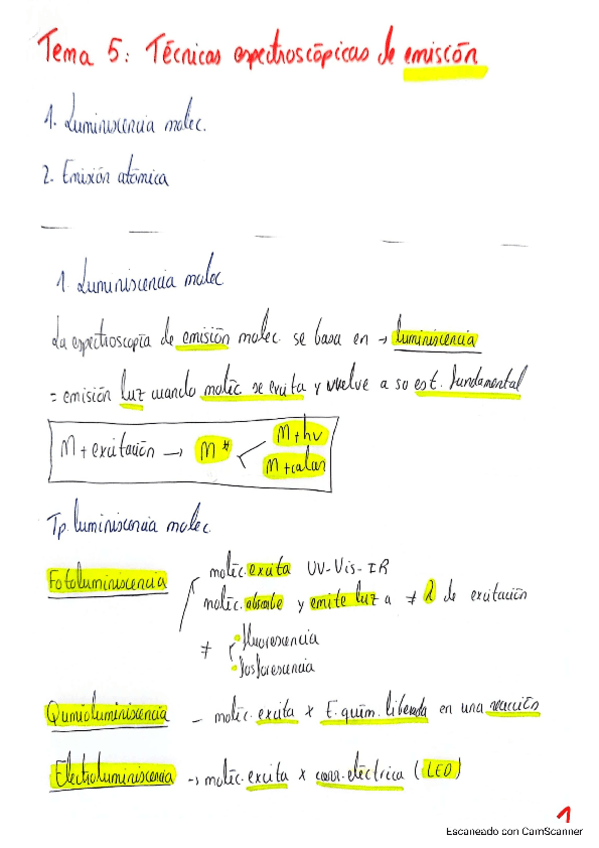 Tema 5: Técnicas espectroscópicas de emisión
1. Luminiscencia molec.
2. Emisión atómica
1. Luminiscencia molec
La espectroscopía de emisión molec. se basa en → luminiscencia
= emisión luz cuando moléc se excita y vuelve a su est. fundamental
M + excitación → M* < M + hν
M + calor
Tp. luminiscencia molec.
Fotoluminiscencia
moléc. excita UV-Vis-IR
moléc. absorbe y emite luz a ≠ λ de excitación
≠ • fluorescencia
• fosforescencia
Quimioluminiscencia – moléc. excita x E. quím. liberada en una reacción
Electroluminiscencia → moléc. excita x corr. eléctrica (LED)
1
Escaneado con CamScanner